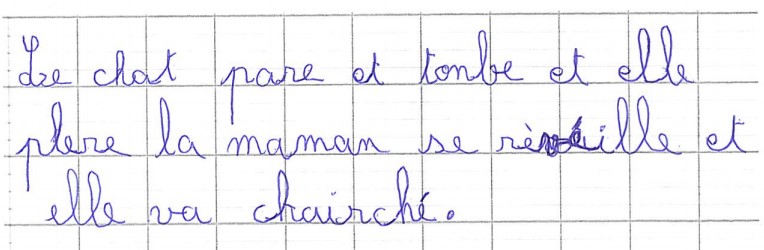 Le chat pare et tonbe et elle
plere la maman se rèvéille et
elle va chairché.